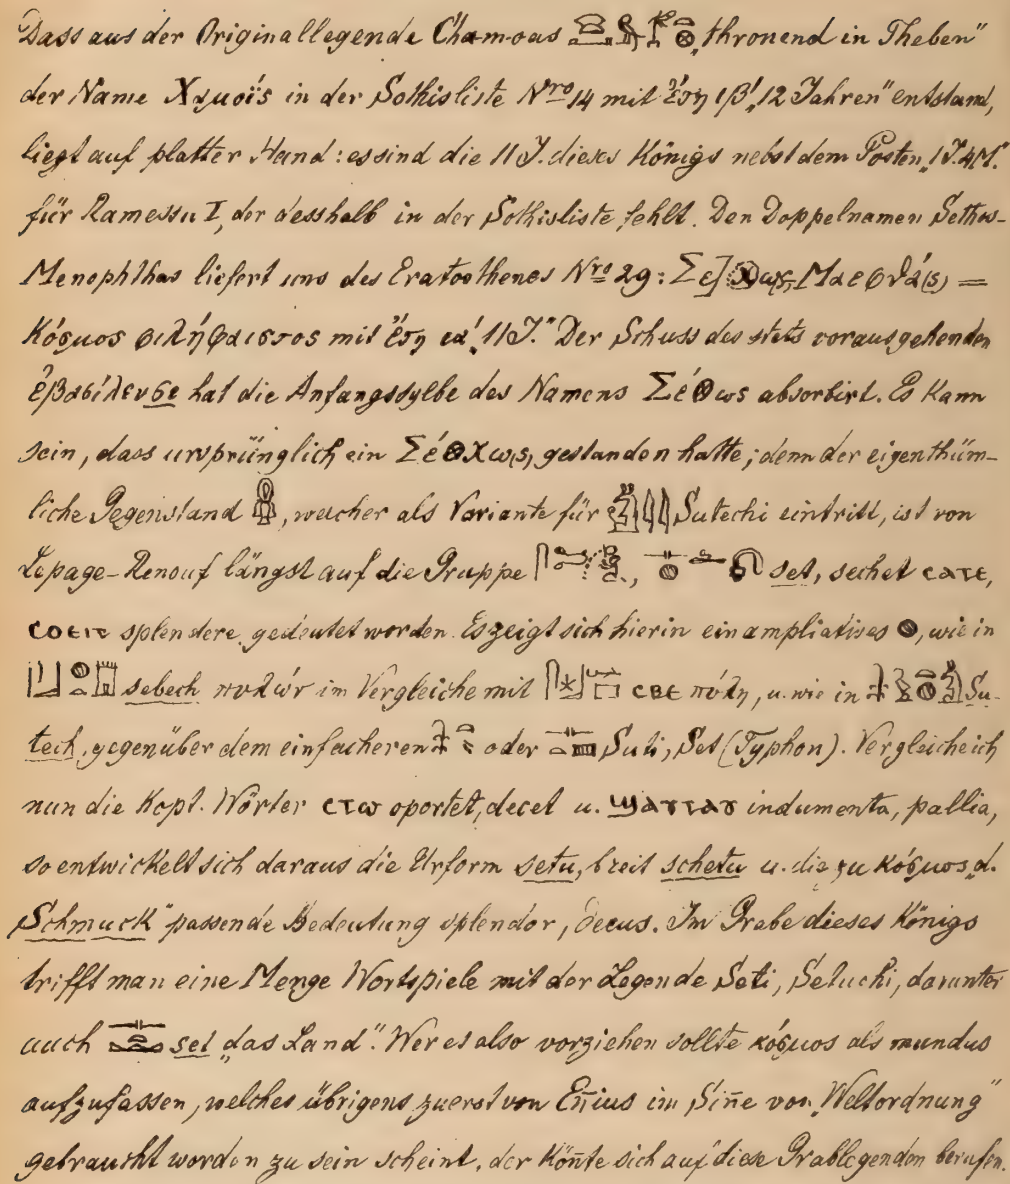 Dass aus der Originallegende Cham-oas „thronend in Theben“
der Name Χαμοΐς in der Sothisliste Nro 14 mit ἔτη ιβ′ „12 Jahren“ entstand,
liegt auf platter Hand: es sind die 11 J. dieses Königs nebst dem Posten „1 J. 4 M.“
für Ramessu I, der desshalb in der Sothisliste fehlt. Den Doppelnamen Sethos-
Menophthas liefert uns des Eratosthenes Nro 29: Μαεφθά(ς) =
Κόσμος φιλήφαιστος mit ἔτη ια′ „11 J.“ Der Schuss des stets vorausgehenden
ἐβασίλευσε hat die Anfangssylbe des Namens Σέθως absorbirt. Es kann
sein, dass ursprünglich ein Σέθχω(ς) gestanden hatte; denn der eigenthüm-
liche Gegenstand , welcher als Variante für Sutechi eintritt, ist von
Lepage-Renouf längst auf die Gruppe , set, sechet ⲥⲁⲧⲉ,
splendere gedeutet worden. Es zeigt sich hierin ein ampliatives , wie in
sebech πυλών im Vergleiche mit ⲥⲃⲉ πύλη, u. wie in Su-
tech, gegenüber dem einfacheren oder Suti, Set (Typhon). Vergleiche ich
nun die kopt. Wörter ⲥⲧⲱ oportet, decet u. ϣⲁⲩⲧⲁⲩ indumenta, pallia,
so entwickelt sich daraus die Urform setu, breit schetu u. die zu κόσμος „d.
Schmuck“ passende Bedeutung splendor, decus. Im Grabe dieses Königs
trifft man eine Menge Wortspiele mit der Legende Seti, Setuchi, darunter
auch set „das Land“. Wer es also vorziehen sollte κόσμος als mundus
aufzufassen, welches übrigens zuerst von Eñius im Siñe von „Weltordnung“
gebraucht worden zu sein scheint, der köñte sich auf diese Grablegenden berufen.